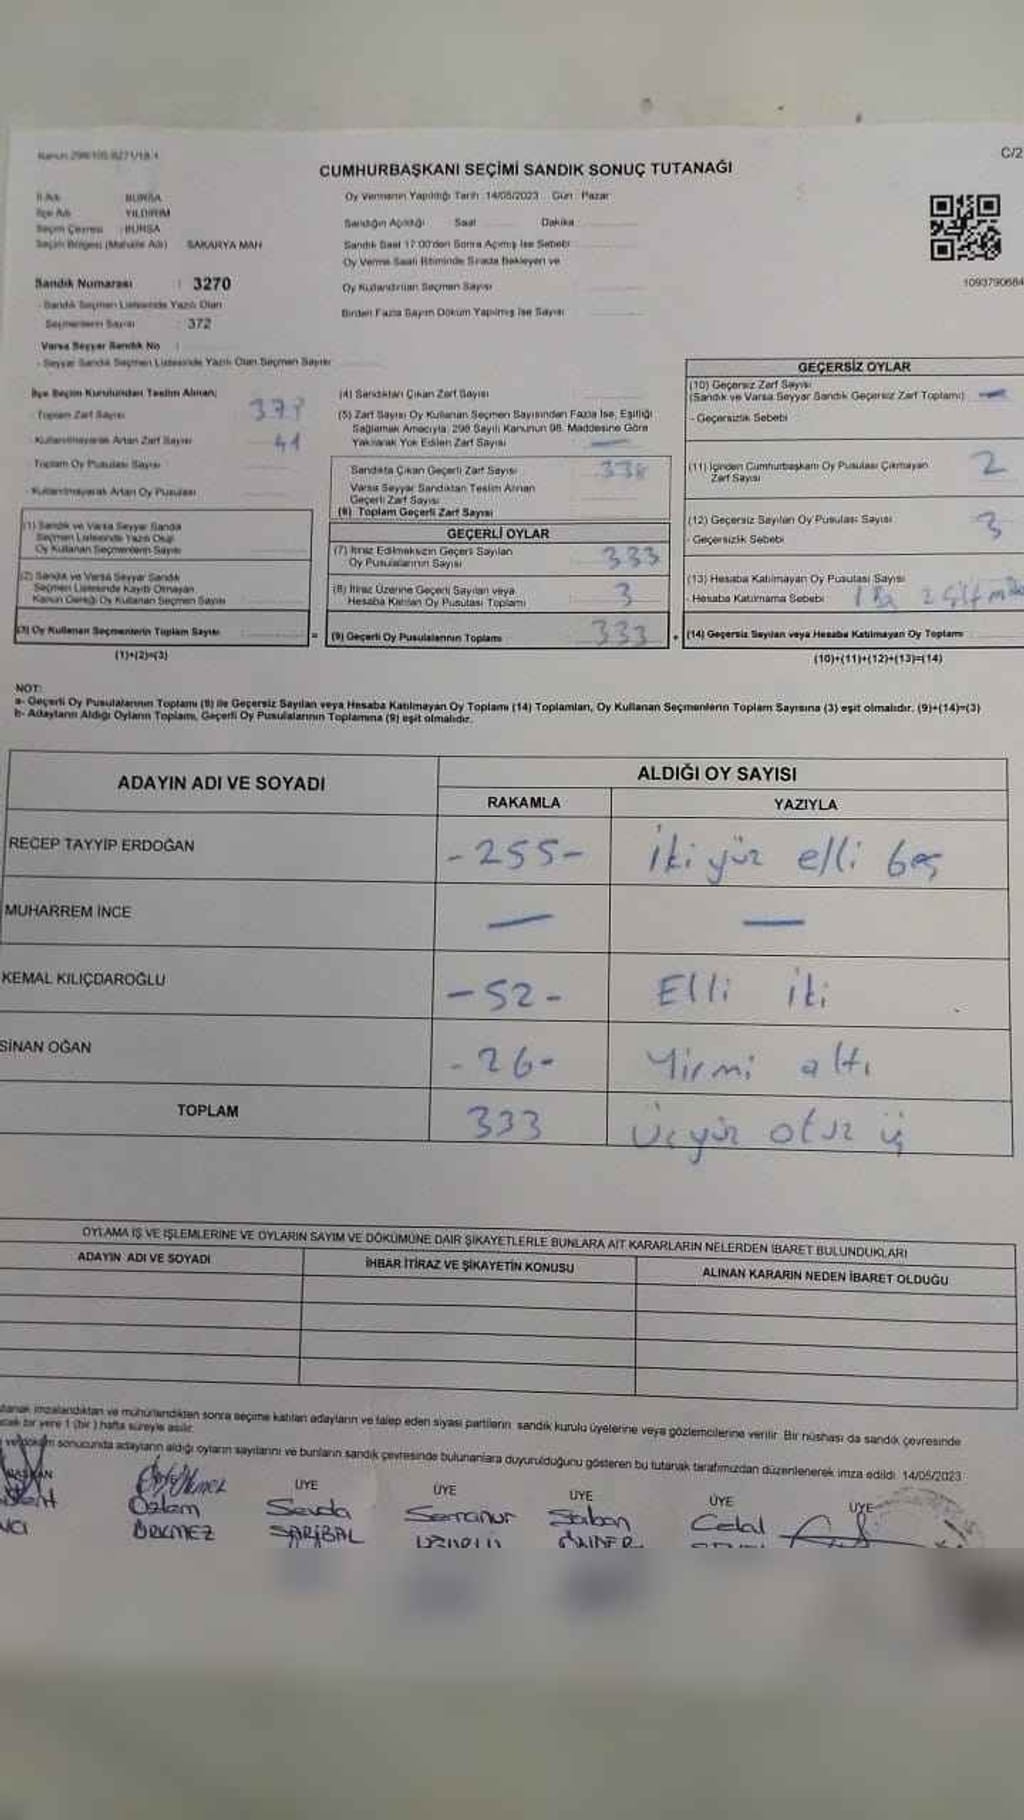 C/2
CUMHURBAŞKANI SEÇİMİ SANDIK SONUÇ TUTANAĞI
İl Adı : BURSA
İlçe Adı : YILDIRIM
Seçim Çevresi : BURSA
Seçim Bölgesi (Mahalle Adı) SAKARYA MAH
Oy Vermenin Yapıldığı Tarih :14/05/2023 Gün : Pazar
Sandığın Açıldığı Saat Dakika
Sandık Saat 17:00'den Sonra Açılmış İse Sebebi
Oy Verme Saati Bitiminde Sırada Bekleyen ve
Oy Kullandırılan Seçmen Sayısı
Birden Fazla Sayım Döküm Yapılmış İse Sayısı
1093790684
Sandık Numarası : 3270
- Sandık Seçmen Listesinde Yazılı Olan
Seçmenlerin Sayısı : 372
Varsa Seyyar Sandık No :
- Seyyar Sandık Seçmen Listesinde Yazılı Olan Seçmen Sayısı
İlçe Seçim Kurulundan Teslim Alınan;
- Toplam Zarf Sayısı
- Kullanılmayarak Artan Zarf Sayısı 41
- Toplam Oy Pusulası Sayısı
- Kullanılmayarak Artan Oy Pusulası
(1) Sandık ve Varsa Seyyar Sandık
Seçmen Listesinde Yazılı Olup
Oy Kullanan Seçmenlerin Sayısı
(2) Sandık ve Varsa Seyyar Sandık
Seçmen Listesinde Kayıtlı Olmayan
Kanun Gereği Oy Kullanan Seçmen Sayısı
(3) Oy Kullanan Seçmenlerin Toplam Sayısı =
(1)+(2)=(3)
(4) Sandıktan Çıkan Zarf Sayısı
(5) Zarf Sayısı Oy Kullanan Seçmen Sayısından Fazla İse, Eşitliği
Sağlamak Amacıyla, 298 Sayılı Kanunun 98. Maddesine Göre
Yakılarak Yok Edilen Zarf Sayısı —
Sandıkta Çıkan Geçerli Zarf Sayısı 338
Varsa Seyyar Sandıktan Teslim Alınan
Geçerli Zarf Sayısı
(6) Toplam Geçerli Zarf Sayısı
GEÇERLİ OYLAR
(7) İtiraz Edilmeksizin Geçerli Sayılan
Oy Pusulalarının Sayısı 333
(8) İtiraz Üzerine Geçerli Sayılan veya
Hesaba Katılan Oy Pusulası Toplamı 3
(9) Geçerli Oy Pusulalarının Toplamı 333 +
GEÇERSİZ OYLAR
(10) Geçersiz Zarf Sayısı
(Sandık ve Varsa Seyyar Sandık Geçersiz Zarf Toplamı) —
- Geçersizlik Sebebi
(11) İçinden Cumhurbaşkanı Oy Pusulası Çıkmayan
Zarf Sayısı 2
(12) Geçersiz Sayılan Oy Pusulası Sayısı 3
- Geçersizlik Sebebi
(13) Hesaba Katılmayan Oy Pusulası Sayısı
- Hesaba Katılmama Sebebi
(14) Geçersiz Sayılan veya Hesaba Katılmayan Oy Toplamı
(10)+(11)+(12)+(13)=(14)
NOT:
a- Geçerli Oy Pusulalarının Toplamı (9) ile Geçersiz Sayılan veya Hesaba Katılmayan Oy Toplamı (14) Toplamları, Oy Kullanan Seçmenlerin Toplam Sayısına (3) eşit olmalıdır. (9)+(14)=(3)
b- Adayların Aldığı Oyların Toplamı, Geçerli Oy Pusulalarının Toplamına (9) eşit olmalıdır.
ADAYIN ADI VE SOYADI ALDIĞI OY SAYISI
RAKAMLA YAZIYLA
RECEP TAYYİP ERDOĞAN -255- iki yüz elli beş
MUHARREM İNCE — —
KEMAL KILIÇDAROĞLU -52- Elli iki
SİNAN OĞAN -26- Yirmi altı
TOPLAM 333 Üçyüz otuz üç
OYLAMA İŞ VE İŞLEMLERİNE VE OYLARIN SAYIM VE DÖKÜMÜNE DAİR ŞİKAYETLERLE BUNLARA AİT KARARLARIN NELERDEN İBARET BULUNDUKLARI
ADAYIN ADI VE SOYADI İHBAR İTİRAZ VE ŞİKAYETİN KONUSU ALINAN KARARIN NEDEN İBARET OLDUĞU
imzalandıktan ve mühürlendikten sonra seçime katılan adayların ve talep eden siyasi partilerin sandık kurulu üyelerine veya gözlemcilerine verilir. Bir nüshası da sandık çevresinde
bir yere 1 (bir) hafta süreyle asılır.
sonucunda adayların aldığı oyların sayılarını ve bunların sandık çevresinde bulunanlara duyurulduğunu gösteren bu tutanak tarafımızdan düzenlenerek imza edildi. 14/05/2023
BAŞKAN ÜYE ÜYE ÜYE ÜYE ÜYE
Özlem Sevda Serranur Şaban Celal
SARIBAL